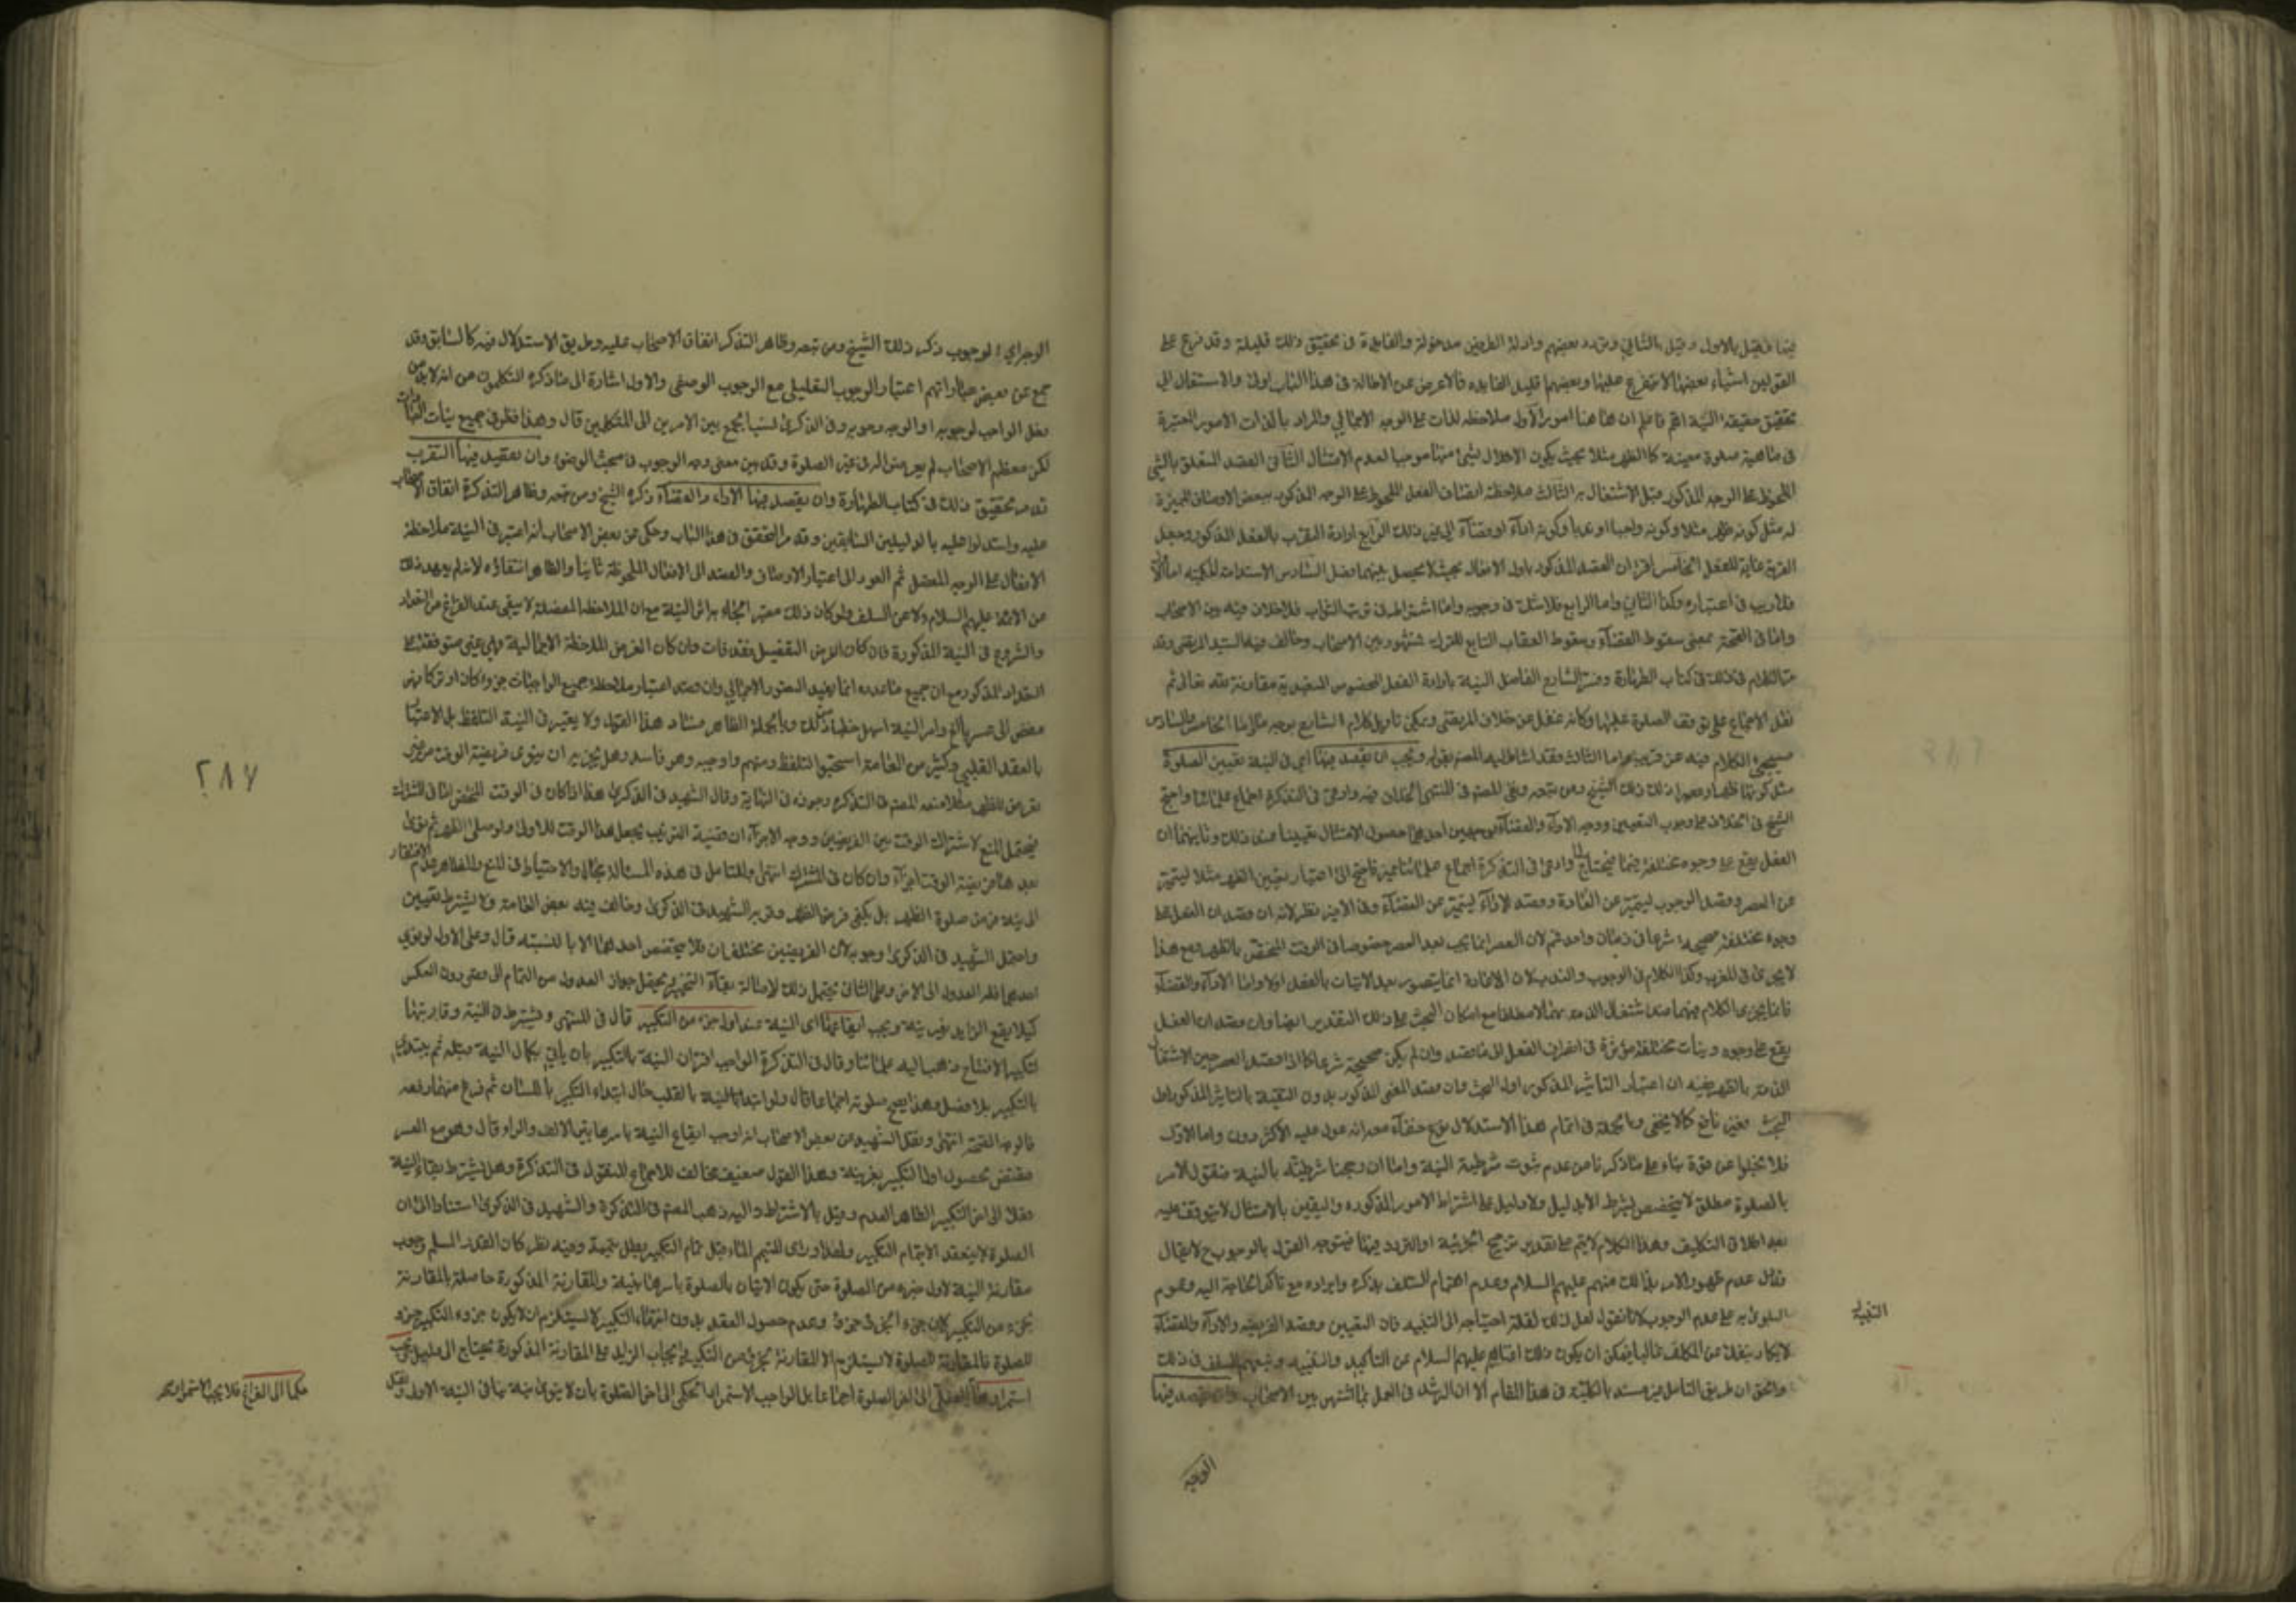 فيها فقيل بالاول وقيل بالثاني وتردد بعضهم وادلة الطرفين مدخولة والفايدة في تحقيق ذلك قليلة وقد فرع على
القولين اشياء بعضها لا يتفرع عليها وبعضها قليل الفايده فالاعرض عن الاطالة في هذا الباب اولى والاشتغال الى
تحقيق حقيقة النية اهم فاعلم ان هاهنا امور الاول ملاحظه الذات على الوجه الاجمالي والمراد بالذات الامور المعتبرة
في ماهية صلوة معينة كالظهر مثلا بحيث يكون الاخلال بشئ منها موجبا لعدم الامتثال الثاني القصد المتعلق بالشئ
الملحوظ على الوجه المذكور قبل الاشتغال به الثالث ملاحظة اتصاف الفعل الملحوظ على الوجه المذكور ببعض الاوصاف المميزة
له مثل كونه ظهر مثلا وكونه واجبا او ندبا وكونه اداء او قضاء الى غير ذلك الرابع ارادة التقرب بالفعل المذكور وجعل
القربة غاية للفعل الخامس اقتران القصد المذكور باول الافعال بحيث لا يحصل بينهما فصل السادس الاستدامة الحكمية اما الاول
فلا ريب في اعتباره وكذا الثاني واما الرابع فلا شك في وجوبه واما اشتراطه في ترتب الثواب فلا خلاف فيه بين الاصحاب
واما في الصحة بمعنى سقوط القضاء وسقوط العقاب التابع للترك فمشهور بين الاصحاب وخالف فيه السيد المرتضى وقد
مر الكلام في ذلك في كتاب الطهارة وفسر الشارح الفاضل النية بارادة الفعل المخصوص المتعبد به مقارنة لله تعالى ثم
نقل الاجماع على توقف الصلوة عليها وكانه غفل عن خلاف المرتضى ويمكن تاويل كلام الشارح بوجه ما اما الخامس والسادس
سيجئ الكلام فيه عن قريب واما الثالث فقد اشار اليه المصنف بقوله ويجب ان يقصد فيها اي في النية تعيين الصلوة
مثل كونها ظهرا وعصرا ذكر ذلك الشيخ ومن تبعه ونفى المصنف في المنتهى الخلاف فيه وادعى في التذكرة اجماع علمائنا واحتج
الشيخ في الخلاف على وجوب التعيين ووجه الاداء والقضاء بوجهين احدهما حصول الامتثال يقينا مع ذلك وثانيهما ان
الفعل يقع على وجوه مختلفة فيما يحتاج وادعى في التذكرة اجماع علمائنا عليه فاحتج الى اعتبار تعيين الظهر مثلا ليتميز
عن العصر وقصد الوجوب ليتميز عن الاعادة وقصد الاداء ليتميز عن القضاء وفي الاخير نظر لانه ان قصد ان الفعل يقع على
وجوه مختلفة صحيحة شرعا في زمان واحد فم لان العصر انما يجب بعد العصر خصوصا في الوقت المختص بالظهر ومع هذا
لا يجري في المغرب وكذا الكلام في الوجوب والندب لان الاعادة انما يتصور بعد الاتيات بالفعل اولا واما الاداء والقضاء
فانما يجري الكلام فيهما عند اشتغال الذمة بهما لا مطلقا مع امكان البحث على ذلك التقدير ايضا وان قصد ان الفعل
يقع على وجوه ونيات مختلفة مؤثرة في انصراف الفعل الى ما قصد وان لم يكن صحيحة شرعا كما اذا قصد العصر حين اشتغال
الذمة بالظهر ففيه ان اعتبار التاثير المذكور اول البحث وان قصد المعنى المذكور بدون التقييد بالتاثير المذكور اول
البحث فغير نافع كما لا يخفى وبالجملة في اتمام هذا الاستدلال نوع خفاء مع انه عول عليه الاكثرون واما الاول
فلا يخلوا عن قوة بناء على ما ذكرنا من عدم ثبوت شرطية النية واما ان رجحنا شرطيته بالنية فنقول الامر
بالصلوة مطلق لا يتخصص بشرط الا بدليل ولا دليل على اشتراط الامور المذكوره واليقين بالامتثال لا يتوقف عليه
بعد اطلاق التكليف وهذا الكلام لا يتم على تقدير ترجيح الجزئية او التردد فيها فيتوجه القول بالوجوب ح لا يقال
يدل عدم ظهور الامر بذلك منهم عليهم السلام وعدم اهتمام السلف بذكره وايراده مع تاكد الحاجة اليه وعموم
البلوى به على عدم الوجوب لانا نقول لعل ذلك لقلة احتياجه الى التنبيه فان التعيين وقصد الفريضه والاداء والقضاء
لا يكاد ينفك عن المكلف غالبا فيمكن ان يكون ذلك اغناهم عليهم السلام عن التاكيد والتقييد وتبعهم السلف في ذلك
والحق ان طريق التامل غير منسد بالكلية في هذا المقام الا ان الرشد في العمل بما اشتهر بين الاصحاب وان يقصد فيها
التنبيه
الوجه
الوجه اي الوجوب ذكر ذلك الشيخ ومن تبعه وظاهر التذكرة اتفاق الاصحاب عليه وطريق الاستدلال فيه كالسابق وقد
جمع عن بعض عباراتهم اعتبار الوجوب التعليلي مع الوجوب الوصفي والاول اشارة الى ما ذكره المتكلمون من انه لابد من
فعل الواجب لوجوبه او لوجه وجوبه وفي الذكرى نسب الجمع بين الامرين الى المتكلمين قال وهذا مطرد في جميع نيات العبادات
لكن معظم الاصحاب لم يعرض اليه في غير الصلوة وقد بين معنى وجه الوجوب في مبحث الوضوء وان يقصد فيها التقرب
قد مر تحقيق ذلك في كتاب الطهارة وان يقصد فيها الاداء والقضاء ذكره الشيخ ومن تبعه وظاهر التذكرة اتفاق الاصحاب
عليه واستدلوا عليه بالدليلين السابقين وقد مر التحقق في هذا الباب وحكى عن بعض الاصحاب انه اعتبر في النية ملاحظة
الافعال على الوجه المفصل ثم العود الى اعتبار الاوصاف والقصد الى الافعال الملحوظة ثانيا والظاهر انتفاؤه لانه لم يعهد ذلك
من الائمة عليهم السلام ولا عن السلف ولو كان ذلك معتبرا لجاء به اثر البتة مع ان الملاحظة المفصلة لا يبقى عند الفراغ من التعداد
والشروع في النية المذكورة فان كان الغرض التفصيل فقد فات وان كان الغرض الملاحظة الاجمالية فهي غير متوقفة على
التعداد المذكور مع ان جميع ما عدده انما يفيد التصور الاجمالي وان قصد اعتبار ملاحظة جميع الواجبات جزء كان او تركا فهو
مفض الى عسر بالغ وامر النية اسهل خطبا من ذلك وبالجملة الظاهر فساد هذا القول ولا يعتبر في النية التلفظ بل الاعتبار
بالعقد القلبي وكثير من العامة استحبوا التلفظ ومنهم من اوجبه وهو فاسد وهل يجزيه ان ينوي فريضة الوقت من غير
تعرض للظهر مثلا منعه المصنف في التذكره وجوزه في النهاية وقال الشهيد في الذكرى هذا اذا كان في الوقت المختص اما في المشترك
فيحتمل المنع لاشتراك الوقت بين الفريضتين ووجه الاجزاء ان قضية الترتيب يجعل هذا الوقت للاولى ولو صلى الظهر ثم نوى
بعد هذا فريضة الوقت اجزاء وان كان في المشترك انتهى وللتامل في هذه المسالة مجال والاحتياط في المنع والظاهر عدم الافتقار
الى نية فرض صلوة الظهر بل يكفي فرض الظهر وقربه الشهيد في الذكرى وخالف فيه بعض العامة ولا يشترط تعيين
واحتمل الشهيد في الذكرى وجوبه لان الفريضتين مختلفتان فلا يتخصص احداهما الا بالنسبته قال وعلى الاول لو نوى
احدهما فله العدول الى الاخر وعلى الثاني يحتمل ذلك لاصالة بقاء التخيير ويحتمل جواز العدول من التمام الى القصر دون العكس
كيلا يقع الزايد بغير نية ويجب ايقاعها اي النية عند اول جزء من التكبير قال في المنتهى ويشترط في النية وقارنتها
لتكبير الافتتاح وذهب اليه علمائنا وقال في التذكرة الواجب اقتران النية بالتكبير بان ياتي بكمال النية قبله ثم يبتدئ
بالتكبير بلا فصل وهذا يصح صلوته اجماعا قال ولو ابتدا بالنية بالقلب حال ابتداء التكبير باللسان ثم فرغ منهما دفعة
فالوجه الصحة انتهى ونقل الشهيد عن بعض الاصحاب انه اوجب ايقاع النية باسرها بين الالف والراء قال وهو مع العسر
مقتض لحصول اول التكبير بغير نية وهذا القول ضعيف مخالف للاجماع المنقول في التذكرة وهل يشترط بقاء النية
فعلا الى اخر التكبير الظاهر العدم وقيل بالاشتراط واليه ذهب المصنف في التذكرة والشهيد في الذكرى استنادا الى ان
الصلوة لا ينعقد الا بتمام التكبير ولهذا لو راى المتيمم الماء قبل تمام التكبير بطل تيممه وفيه نظر كان القدر المسلم وجوب
مقارنة النية لاول جزء من الصلوة حتى يكون الاتيان بالصلوة باسرها بنية والمقارنة المذكورة حاصلة بالمقارنة
بجزء من التكبير لان جزء الجزء جزء وعدم حصول العقد بدون انتهاء التكبير لا يستلزم ان لا يكون جزء التكبير جزء
للصلوة فالمقارنة للصلوة لا يستلزم الا المقارنة بجزء من التكبير وايجاب الزايد على المقارنة المذكورة يحتاج الى دليل يجب
استمرارها الفعلي الى اخر الصلوة اجماعا بل الواجب الاستمرار الحكمي الى اخر الصلوة بان لا ينوى نية ينافي النية الاولى
حكما الى الفراغ فلا يجب الاستمرار
٢٨٧